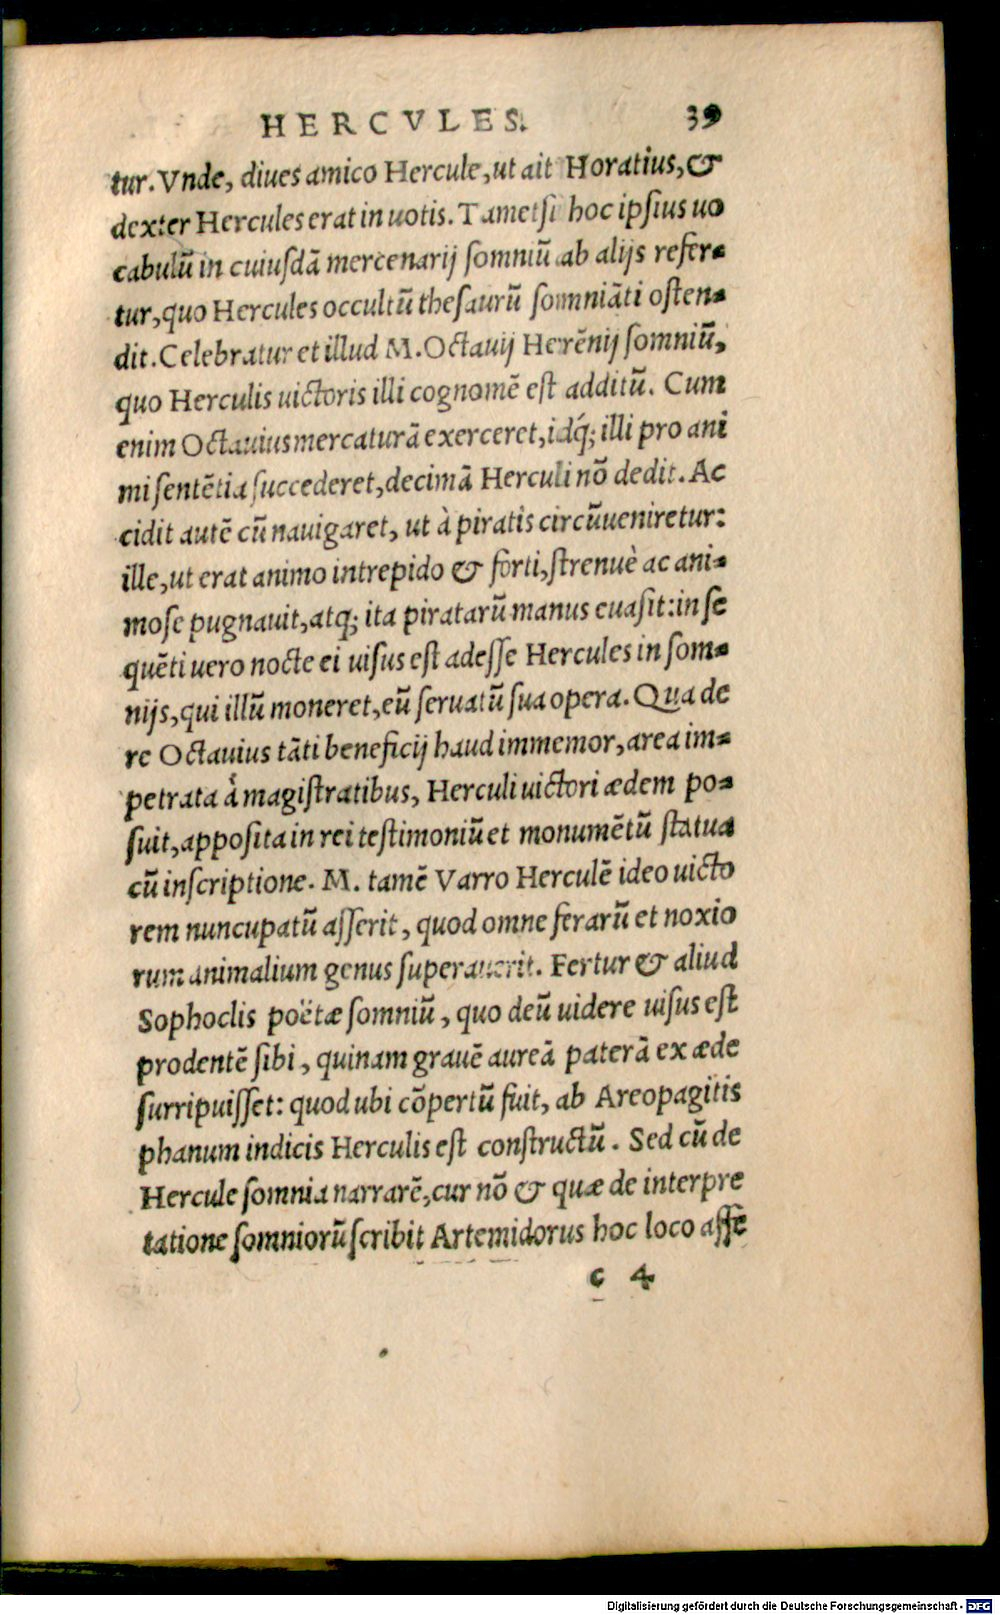 HERCVLES. 39
tur. Vnde, diues amico Hercule, ut ait Horatius, &
dexter Hercules erat in uotis. Tametsi hoc ipsius uo
cabulū in cuiusdā mercenarij somniū ab alijs refer-
tur, quo Hercules occultū thesaurū somniāti osten-
dit. Celebratur et illud M. Octauij Herēnij somniū,
quo Herculis uictoris illi cognomē est additū. Cum
enim Octauius mercaturā exerceret, idq́; illi pro ani
mi sentētia succederet, decimā Herculi nō dedit. Ac
cidit autē cū nauigaret, ut à piratis circūueniretur:
ille, ut erat animo intrepido & forti, strenuè ac ani-
mose pugnauit, atq; ita piratarū manus euasit: in se
quēti uero nocte ei uisus est adesse Hercules in som-
nijs, qui illū moneret, eū seruatū sua opera. Qua de
re Octauius tāti beneficij haud immemor, area im-
petrata à magistratibus, Herculi uictori ædem po-
suit, apposita in rei testimoniū et monumētū statua
cū inscriptione. M. tamē Varro Herculē ideo uicto
rem nuncupatū asserit, quod omne ferarū et noxio
rum animalium genus superauerit. Fertur & aliud
Sophoclis poëtæ somniū, quo deū uidere uisus est
prodentē sibi, quinam grauē aureā paterā ex æde
surripuisset: quod ubi cōpertū fuit, ab Areopagitis
phanum indicis Herculis est constructū. Sed cū de
Hercule somnia narrarē, cur nō & quæ de interpre
tatione somniorū scribit Artemidorus hoc loco assē
c 4
Digitalisierung gefördert durch die Deutsche Forschungsgemeinschaft - DFG